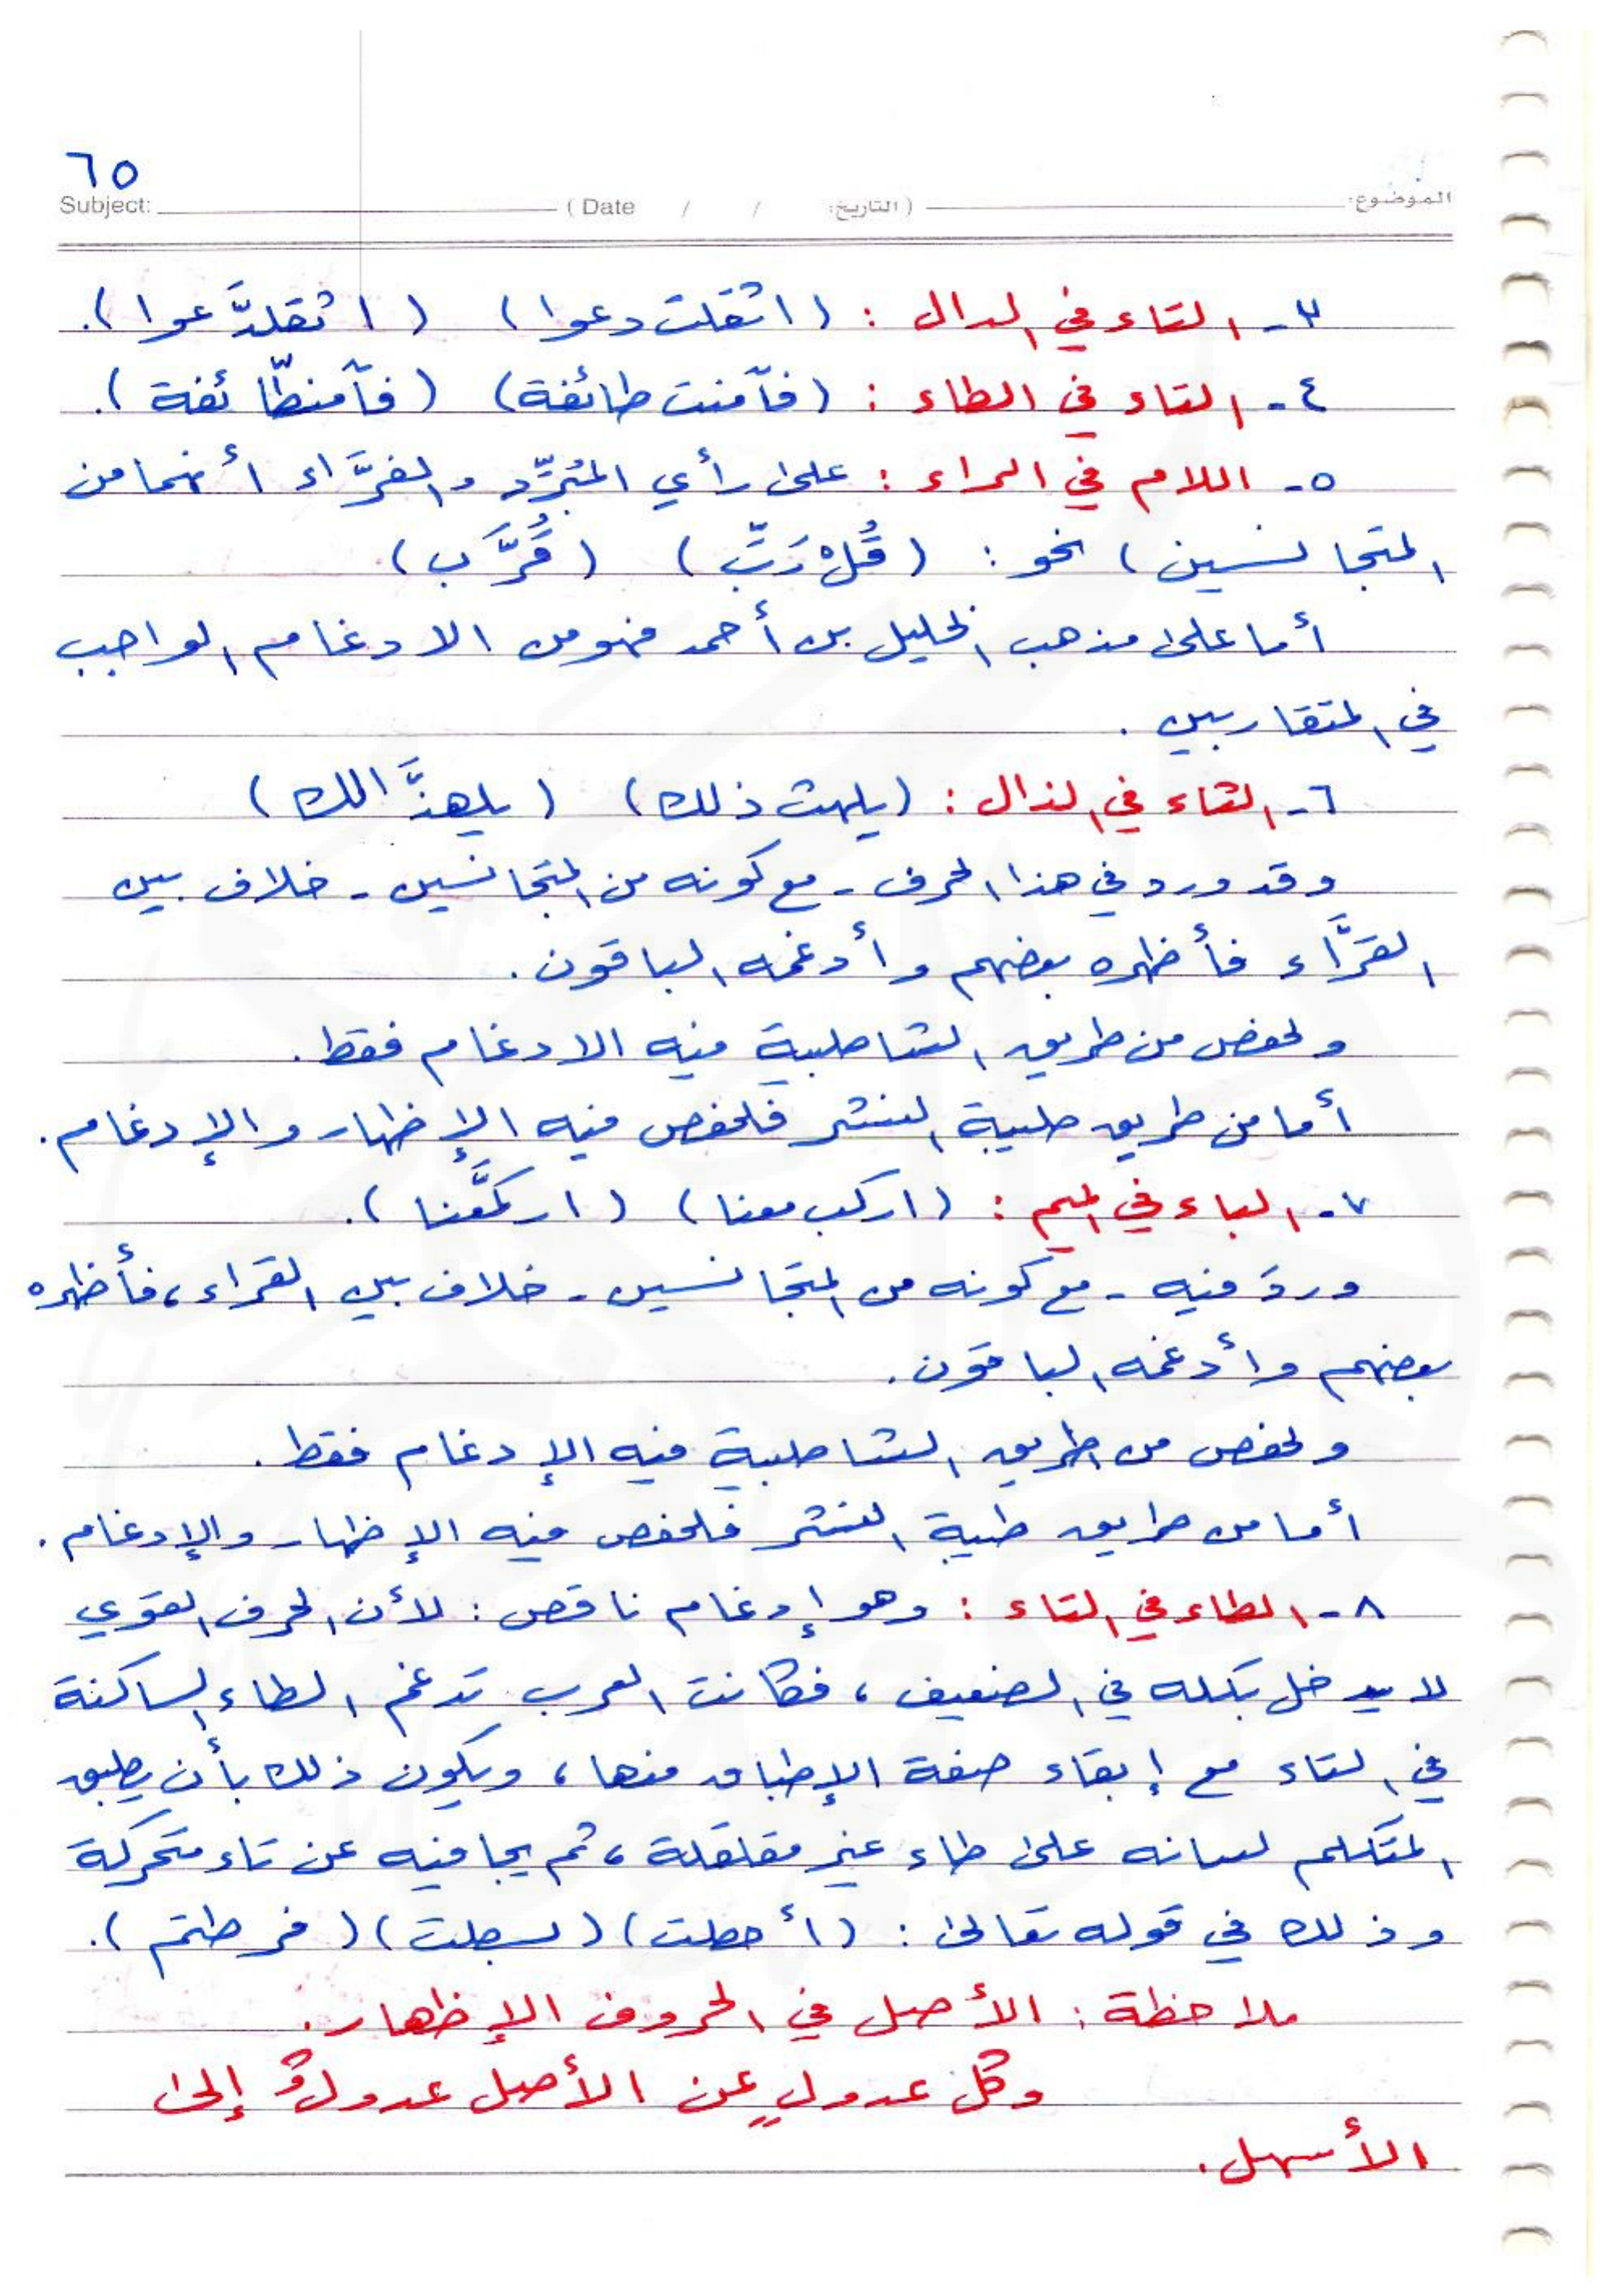 ٦٥
Subject: ( Date / / التاريخ: ) الموضوع:
٣- التاء في الدال : ( اثقلت دعوا ) ( اثقلدَّعوا ).
٤- التاء في الطاء : ( فآمنت طائفة ) ( فآمنطّائفة ).
٥- اللام في الراء : على رأي المُبَرِّد والفرَّاء أنهما من
المتجانسين ) نحو : ( قُلْ رَبِّ ) ( قُرَّب )
أما على مذهب الخليل بن أحمد فهو من الادغام الواجب
في المتقاربين .
٦- الثاء في الذال : ( يلهث ذلك ) ( يلهذَّالك )
وقد ورد في هذا الحرف - مع كونه من المتجانسين - خلاف بين
القرَّاء فأظهره بعضهم وأدغمه الباقون .
ولحفص من طريق الشاطبية فيه الادغام فقط .
أما من طريق طيبة النشر فلحفص فيه الإظهار والإدغام .
٧- الباء في الميم : ( اركب معنا ) ( اركمَّعنا ).
وردَ فيه - مع كونه من المتجانسين - خلاف بين القراء ، فأظهره
بعضهم وأدغمه الباقون .
ولحفص من طريق الشاطبية فيه الإدغام فقط .
أما من طريق طيبة النشر فلحفص فيه الإظهار والإدغام .
٨- الطاء في التاء : وهو إدغام ناقص : لأن الحرف القوي
لا يدخل بكله في الضعيف ، فكانت العرب تدغم الطاء الساكنة
في التاء مع إبقاء صفة الإطباق منها ، ويكون ذلك بأن يطبق
المتكلم لسانه على طاء غير مقلقلة ، ثم يجافيه عن تاء متحركة
وذلك في قوله تعالى : ( أحطت ) ( بسطت ) ( فرطتم ).
ملاحظة : الأصل في الحروف الإظهار .
وكل عدولٍ عن الأصل عدولٌ إلى
الأسهل .